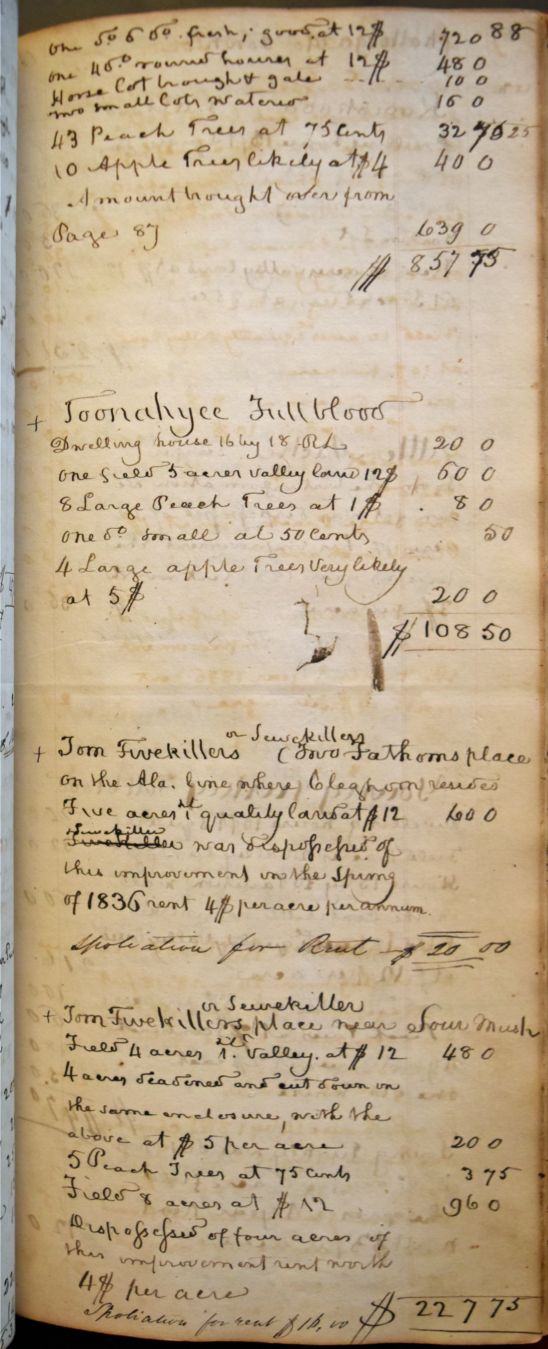 one do 6 do. fresh, good at 12$ 720 88
one 4 do round houses at 12$ 48 0
Horse Cot brought & gate 10 0
two small Cots watered 16 0
43 Peach Trees at 75 Cents 32 75 25
10 Apple Trees likely at $4 40 0
Amount brought over from
Page 87 639 0
$ 857 75
+ Toonahyee Fullblood
Dwelling house 16 by 18 R L 20 0
one field 5 acres valley land 12$ 60 0
8 Large Peach Trees at 1$ . 8 0
one do small at 50 Cents 50
4 Large apple Trees Very likely
at 5$ 20 0
$ 108 50
or Sewekillers
+ Tom Fivekillers (Two Fathoms place
on the Ala. line where Cleghorn resides
Five acres 1st quality land at $12 60 0
Sewekiller
Fivekiller was dispossessed of
this improvement in the Spring
of 1836 rent 4$ per acre per annum.
Spoliation for Rent $ 20 00
or Sewekiller
+ Tom Fivekillers place near Sour Mush
Field 4 acres 1st. Valley. at $ 12 48 0
4 acres deadened and cut down on
the same enclosure, with the
above at $ 5 per acre 20 0
5 Peach Trees at 75 Cents 3 75
Field 8 acres at $ 12 96 0
Dispossessed of four acres of
this improvement rent worth
4$ per acre
Spoliation for rent $ 16,00 $ 227 75